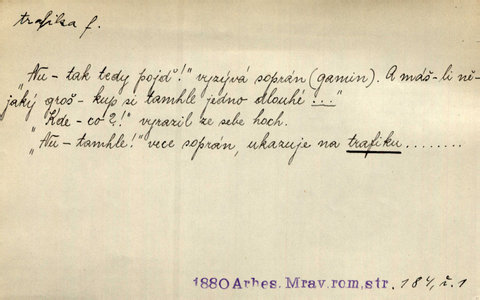 trafika f.
„Nu – tak tedy pojď!" vyzývá soprán (gamin). A máš-li ně-
jaký groš – kup si tamhle jedno dlouhé ...."
„Kde – co?!" vyrazil ze sebe hoch.
„Nu – tamhle!" vece soprán, ukazuje na trafiku ........
1880 Arbes. Mrav. rom. str. 184, č. 1